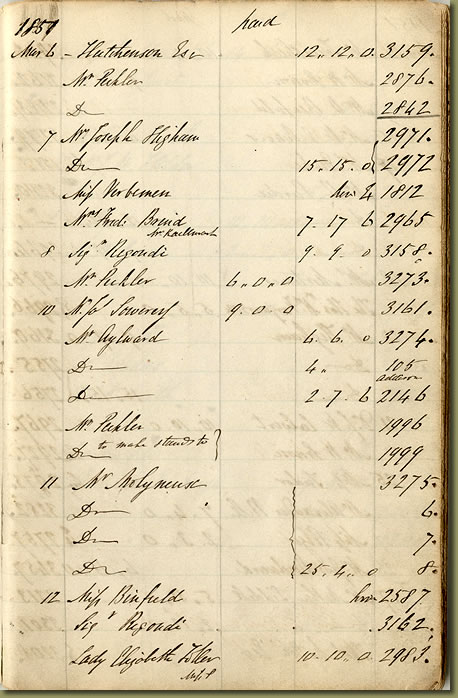 1851 paid
Mar 6 - Hutchenson Esqr 12 " 12 " 0 3159.
Mr Pechler 2876.
Do 2842
7 Mr Joseph Higham 2971.
Do 15 . 15 . 0 2972
Miss Verbemen hire 1812
Mrs Fredk Broid 7 - 17 6 2965
8 Sigr Regondi 9 . 9 . 0 3158.
Mr Pechler 6 " 0 " 0 3273.
10 Sowerey 9 . 0 . 0 3161.
Mr Aylward 6 . 6 . 0 3274.
Do 4 " 105
addition
Do 2 . 7 . 6 2146
Mr Pechler 1996
Do to make stands to 1999
11 Mr Molyneux 3275.
Do 6.
Do 7.
Do 25 . 4 . 0 8.
12 Miss Binfield hire 2587.
Sigr Regondi 3162.
Lady Elizabeth 10 . 10 . 0 2983.